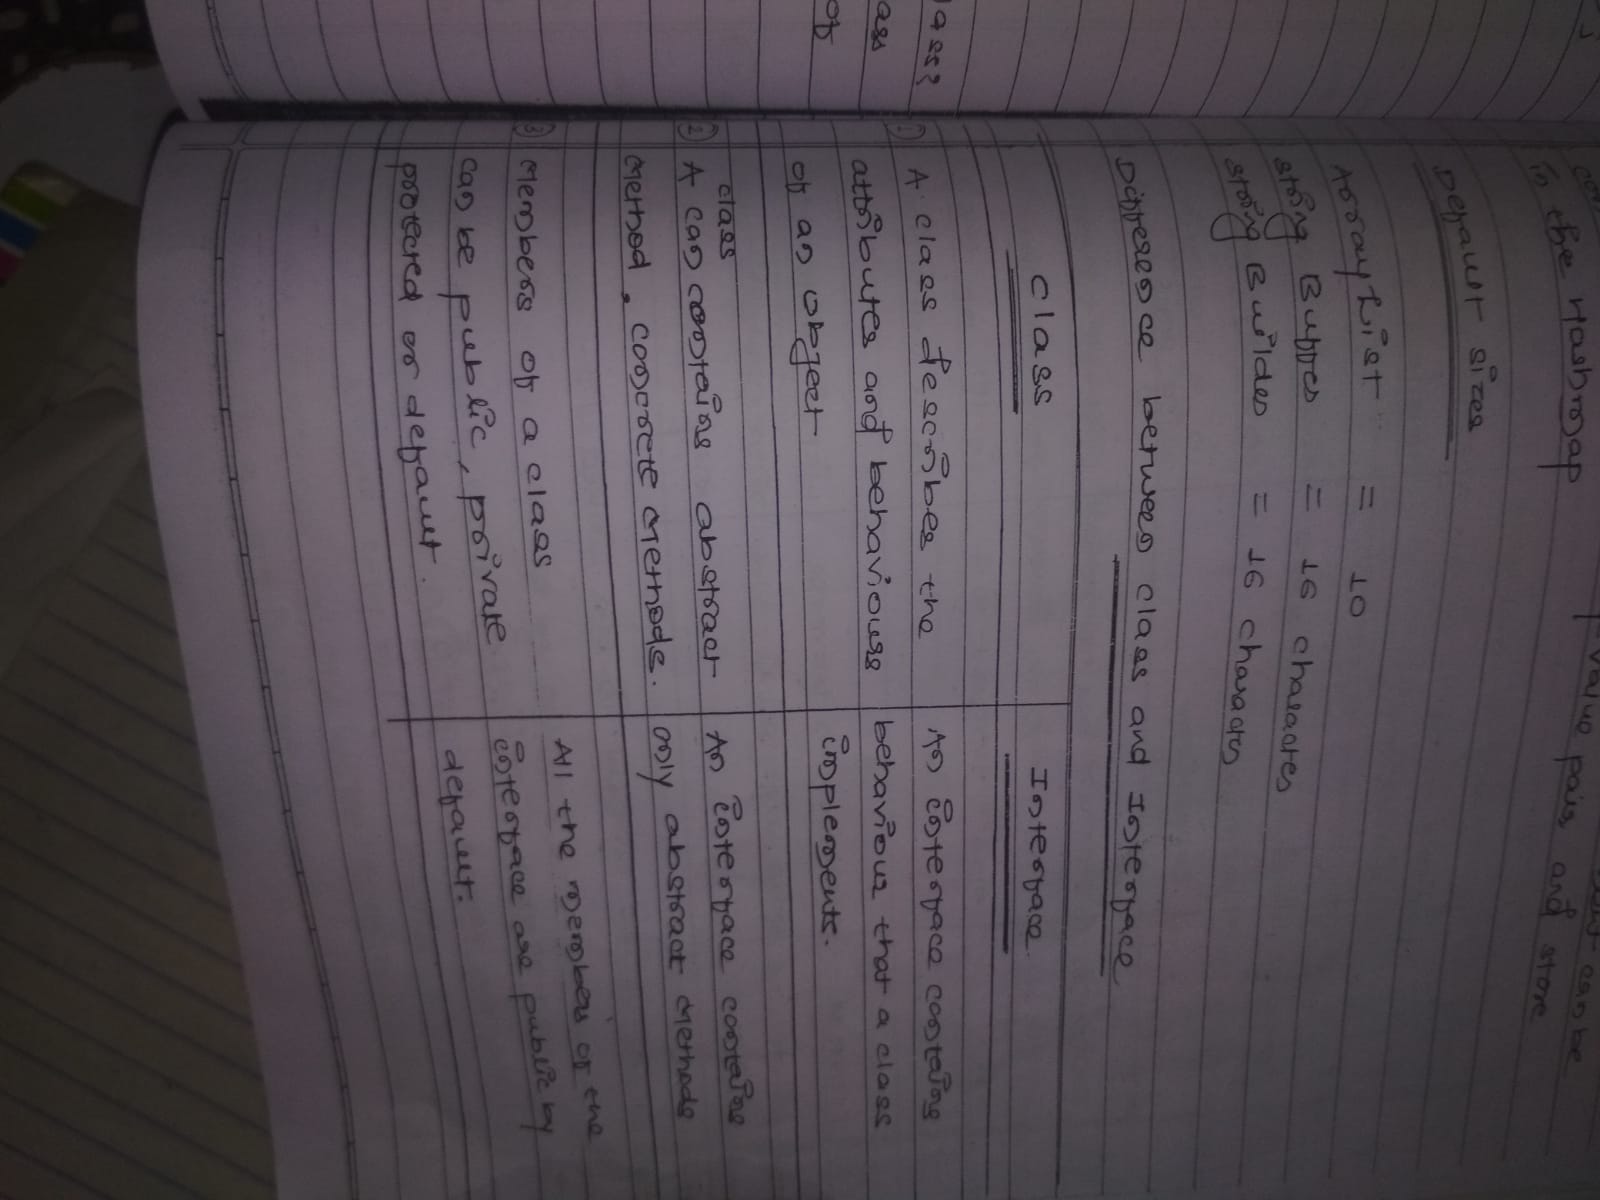 value pairs and
can be
in the Hashmap
and store
Default sizes
ArrayList = 10
String Buffer = 16 characters
String Builder = 16 characters
Difference between class and Interface
Class
Interface
① A class describes the
attributes and behaviours
of an object
An interface contains
behaviour that a class
implements.
class
② A can contains abstract
method, concrete methods.
An interface contains
only abstract methods
③ Members of a class
can be public, private
protected or default.
All the members of the
interface are public by
default.
ass
of